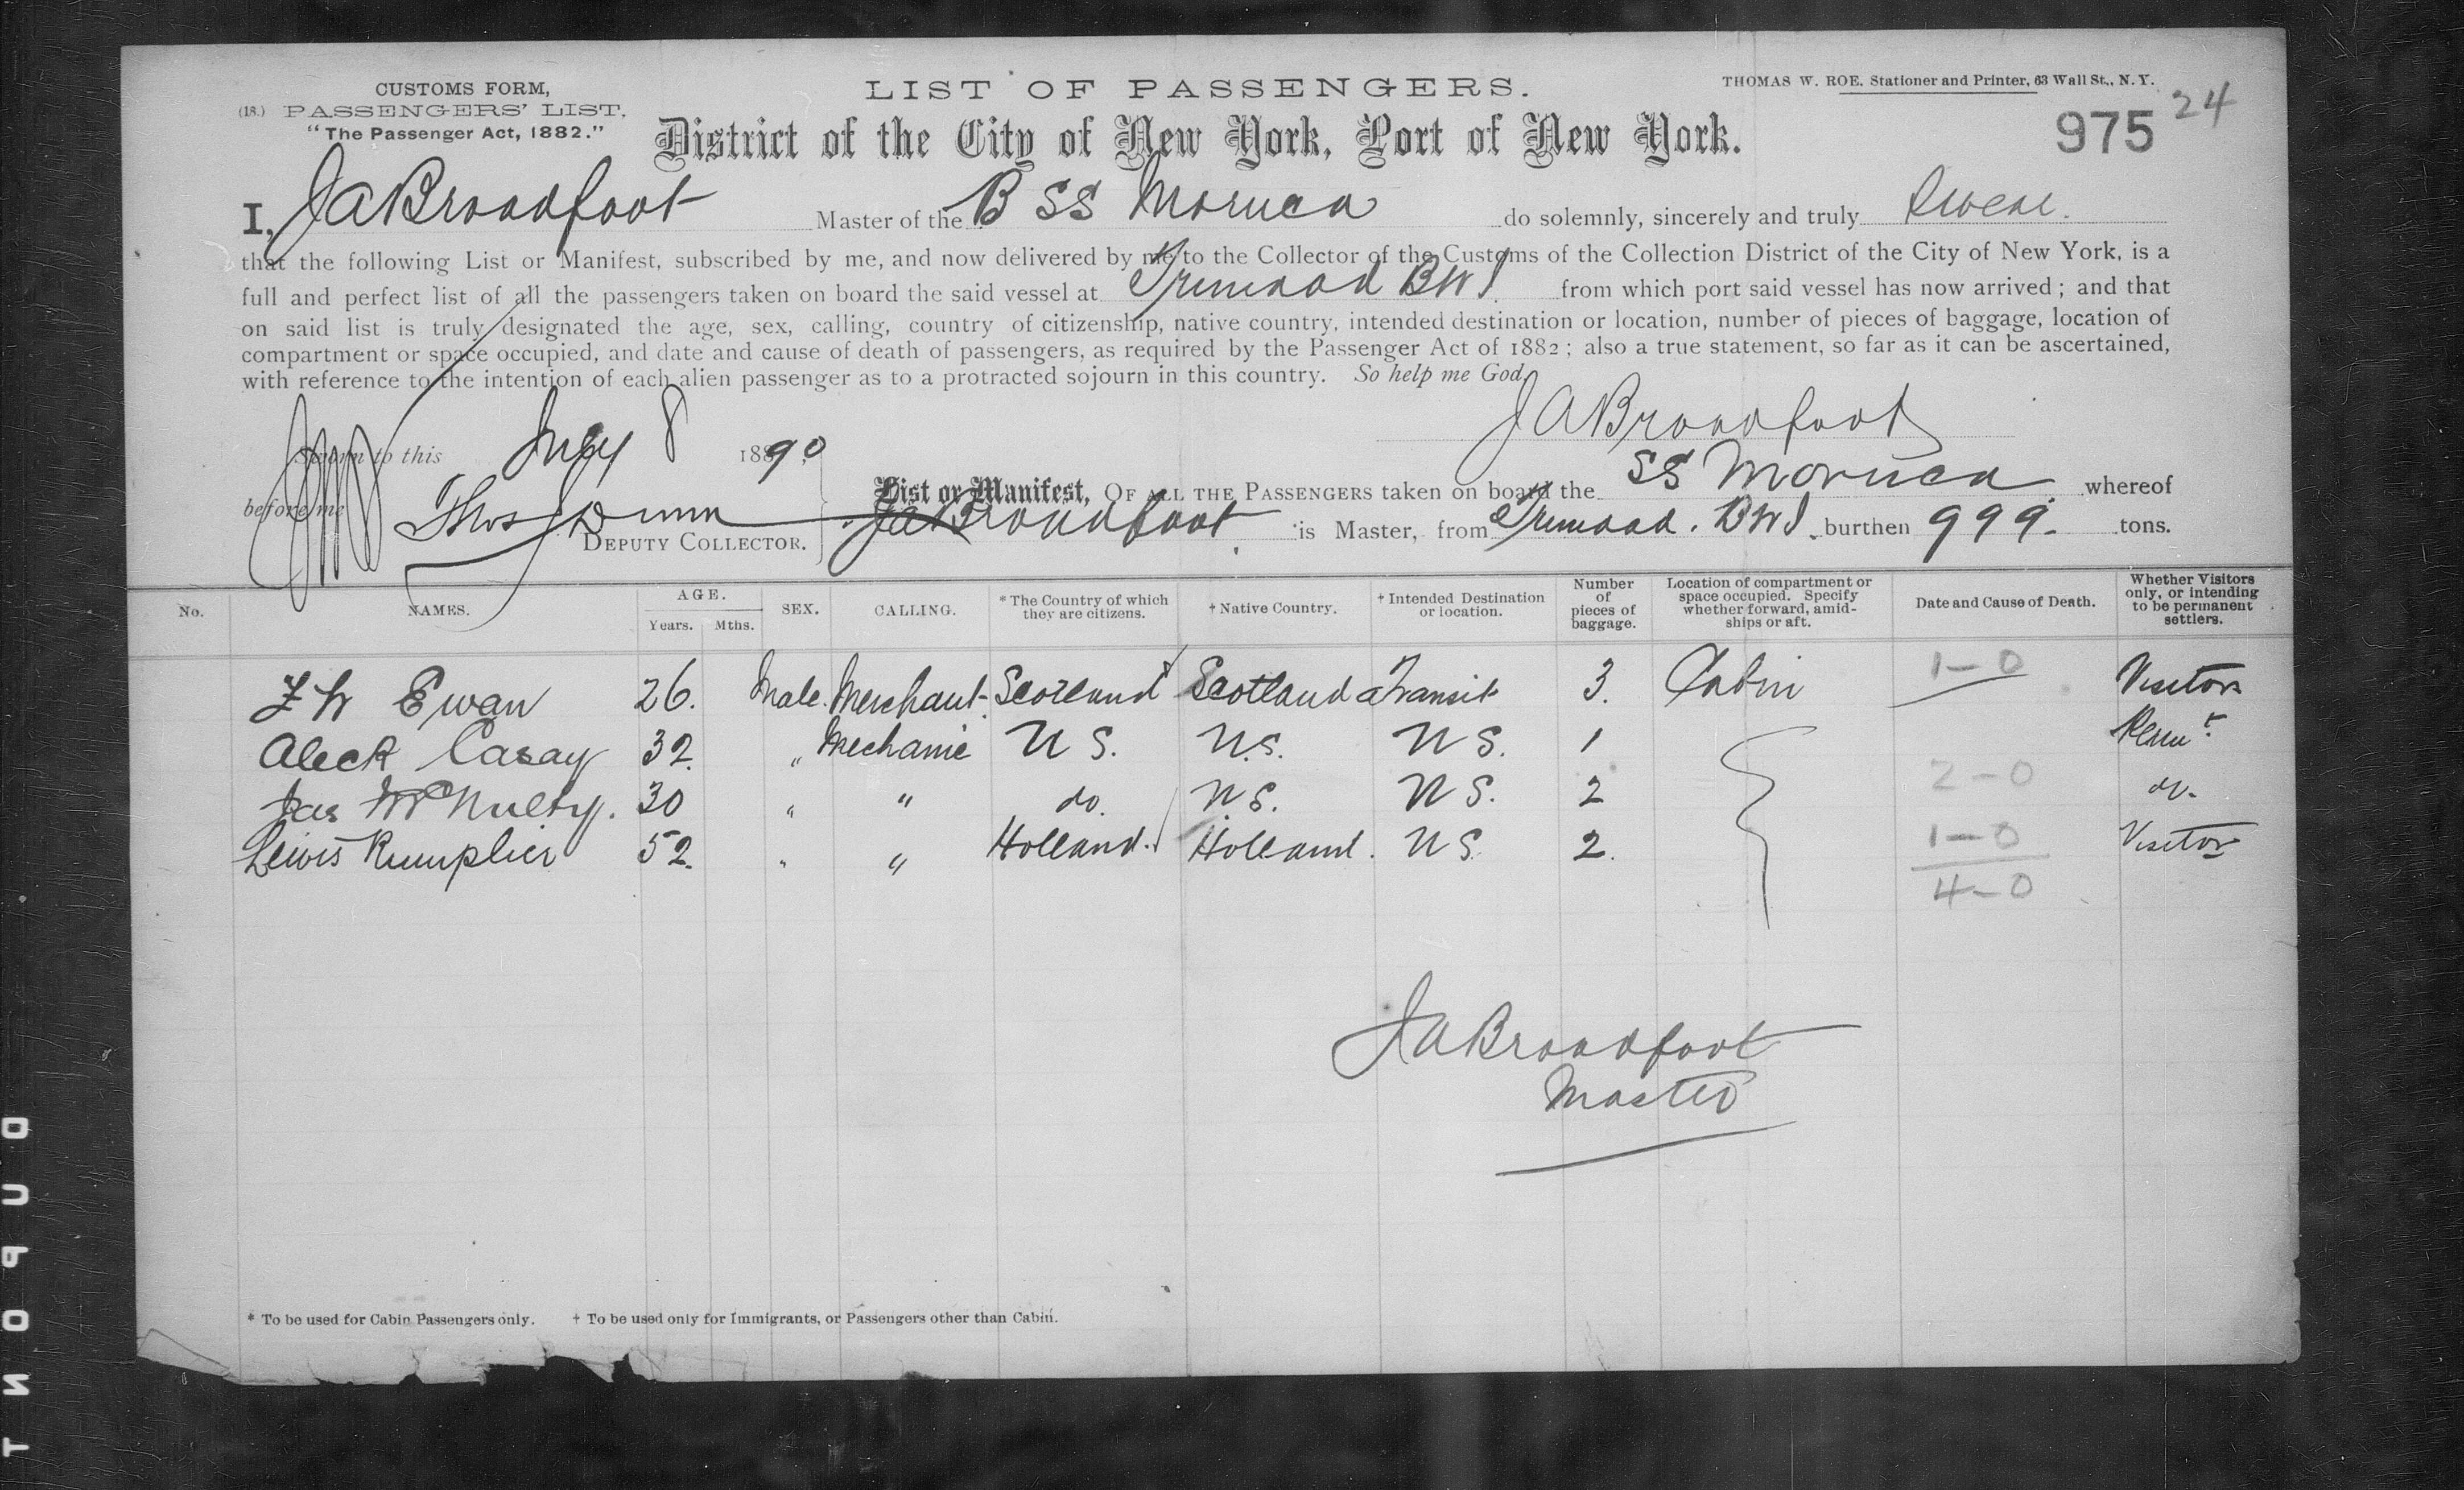 CUSTOMS FORM,
(18.) PASSENGERS' LIST.
"The Passenger Act, 1882."
LIST OF PASSENGERS.
THOMAS W. ROE. Stationer and Printer, 63 Wall St., N.Y.
District of the City of New York, Port of New York.
975 24
I, J A Broadfoot Master of the B SS Moruca do solemnly, sincerely and truly swear.
that the following List or Manifest, subscribed by me, and now delivered by me to the Collector of the Customs of the Collection District of the City of New York, is a
full and perfect list of all the passengers taken on board the said vessel at Trinidad BWI from which port said vessel has now arrived; and that
on said list is truly designated the age, sex, calling, country of citizenship, native country, intended destination or location, number of pieces of baggage, location of
compartment or space occupied, and date and cause of death of passengers, as required by the Passenger Act of 1882; also a true statement, so far as it can be ascertained,
with reference to the intention of each alien passenger as to a protracted sojourn in this country. So help me God.
J A Broadfoot
Sworn to this July 8 1890
before me Thos J Dunn
DEPUTY COLLECTOR.
List or Manifest, OF ALL THE PASSENGERS taken on board the SS Moruca whereof
J A Broadfoot is Master, from Trinidad. BWI. burthen 999. tons.
No. NAMES. AGE. Years. Mths. SEX. CALLING. * The Country of which they are citizens. † Native Country. † Intended Destination or location. Number of pieces of baggage. Location of compartment or space occupied. Specify whether forward, amidships or aft. Date and Cause of Death. Whether Visitors only, or intending to be permanent settlers.
Ewan 26. Male. Merchant. Scotland Scotland Transit 3. Cabin 1-0 Visitors
Aleck Casay 32. " Mechanic U S. U.S. U S. 1 Permt
Jas McNulty. 30 " " do. U S. U S. 2 2-0 do.
Lewis Rumplier 52. " " Holland. Holland. U S. 2. 1-0 Visitor
4-0
J A Broadfoot
Master
* To be used for Cabin Passengers only. † To be used only for Immigrants, or Passengers other than Cabin.
T No UP O